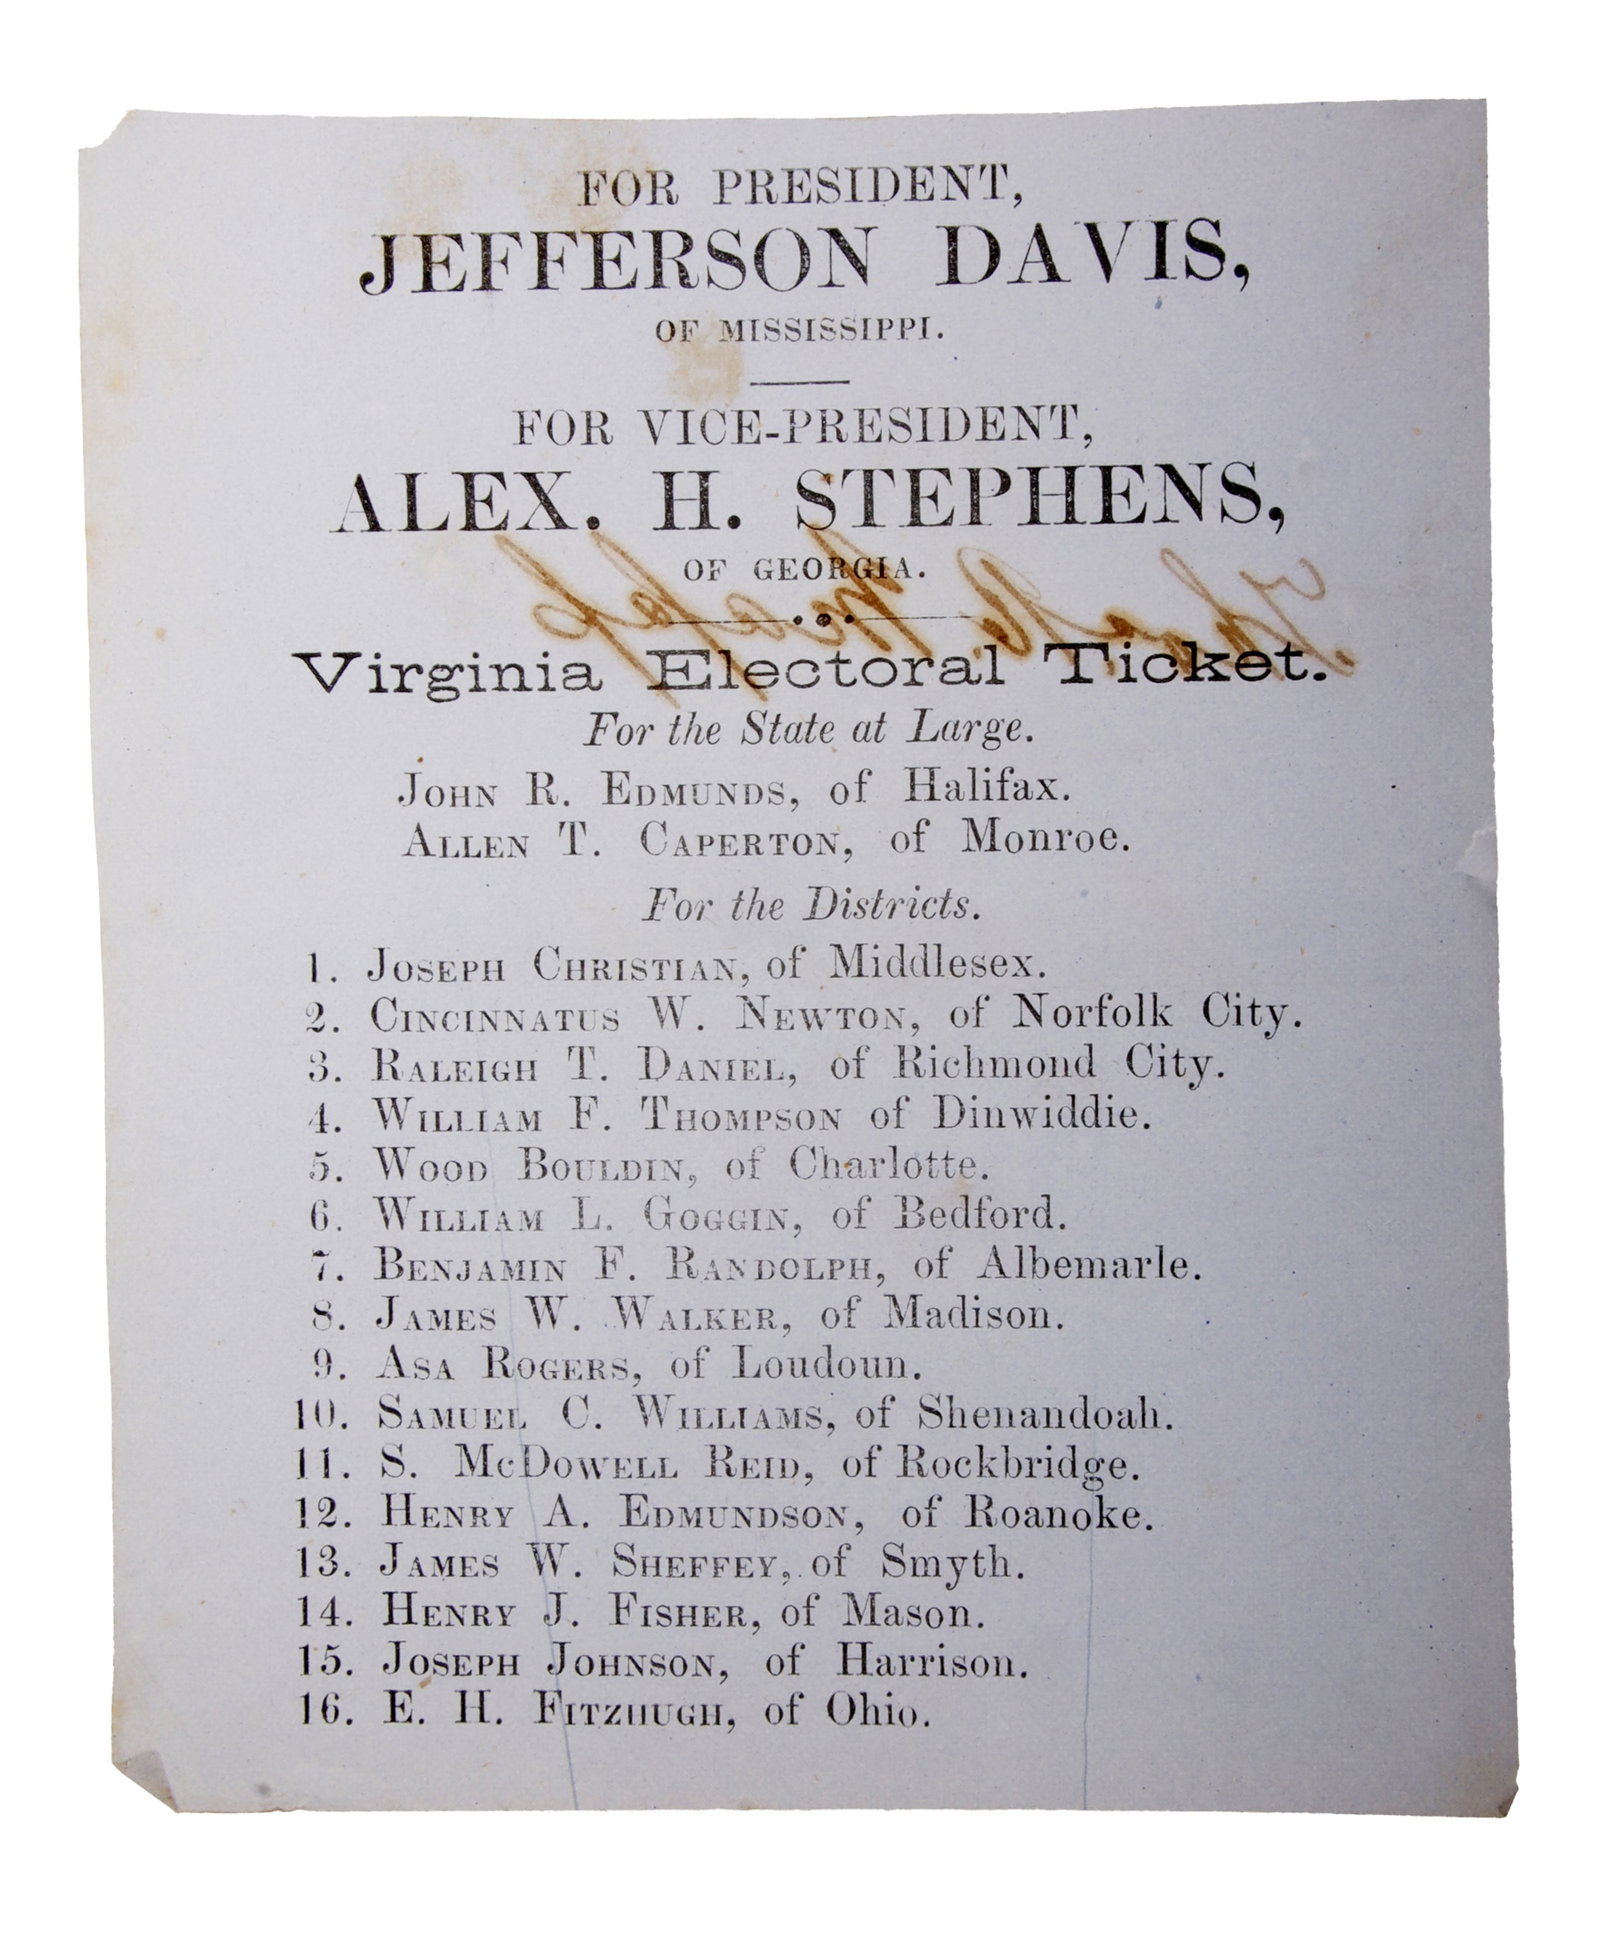 FOR PRESIDENT,
JEFFERSON DAVIS,
OF MISSISSIPPI.
FOR VICE-PRESIDENT,
ALEX. H. STEPHENS,
OF GEORGIA.
Virginia Electoral Ticket.
For the State at Large.
JOHN R. EDMUNDS, of Halifax.
ALLEN T. CAPERTON, of Monroe.
For the Districts.
1. JOSEPH CHRISTIAN, of Middlesex.
2. CINCINNATUS W. NEWTON, of Norfolk City.
3. RALEIGH T. DANIEL, of Richmond City.
4. WILLIAM F. THOMPSON of Dinwiddie.
5. WOOD BOULDIN, of Charlotte.
6. WILLIAM L. GOGGIN, of Bedford.
7. BENJAMIN F. RANDOLPH, of Albemarle.
8. JAMES W. WALKER, of Madison.
9. ASA ROGERS, of Loudoun.
10. SAMUEL C. WILLIAMS, of Shenandoah.
11. S. MCDOWELL REID, of Rockbridge.
12. HENRY A. EDMUNDSON, of Roanoke.
13. JAMES W. SHEFFEY, of Smyth.
14. HENRY J. FISHER, of Mason.
15. JOSEPH JOHNSON, of Harrison.
16. E. H. FITZHUGH, of Ohio.